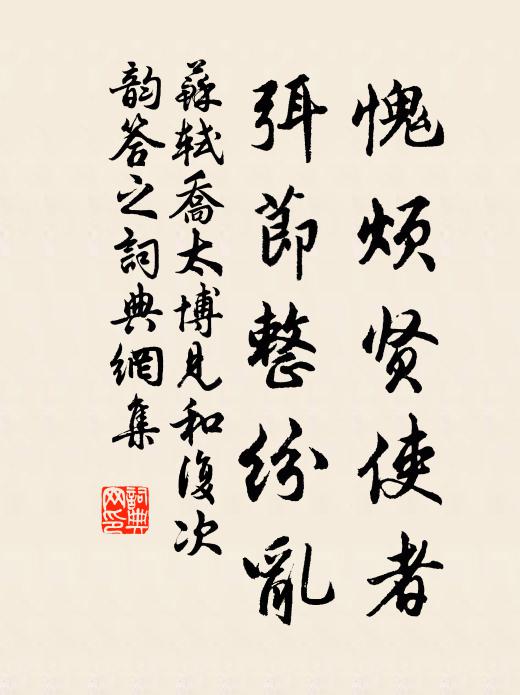 愧烦贤使者
弭節整紛亂
蘇軾喬太博見和復次
韵答之詞典網集
詞典网印